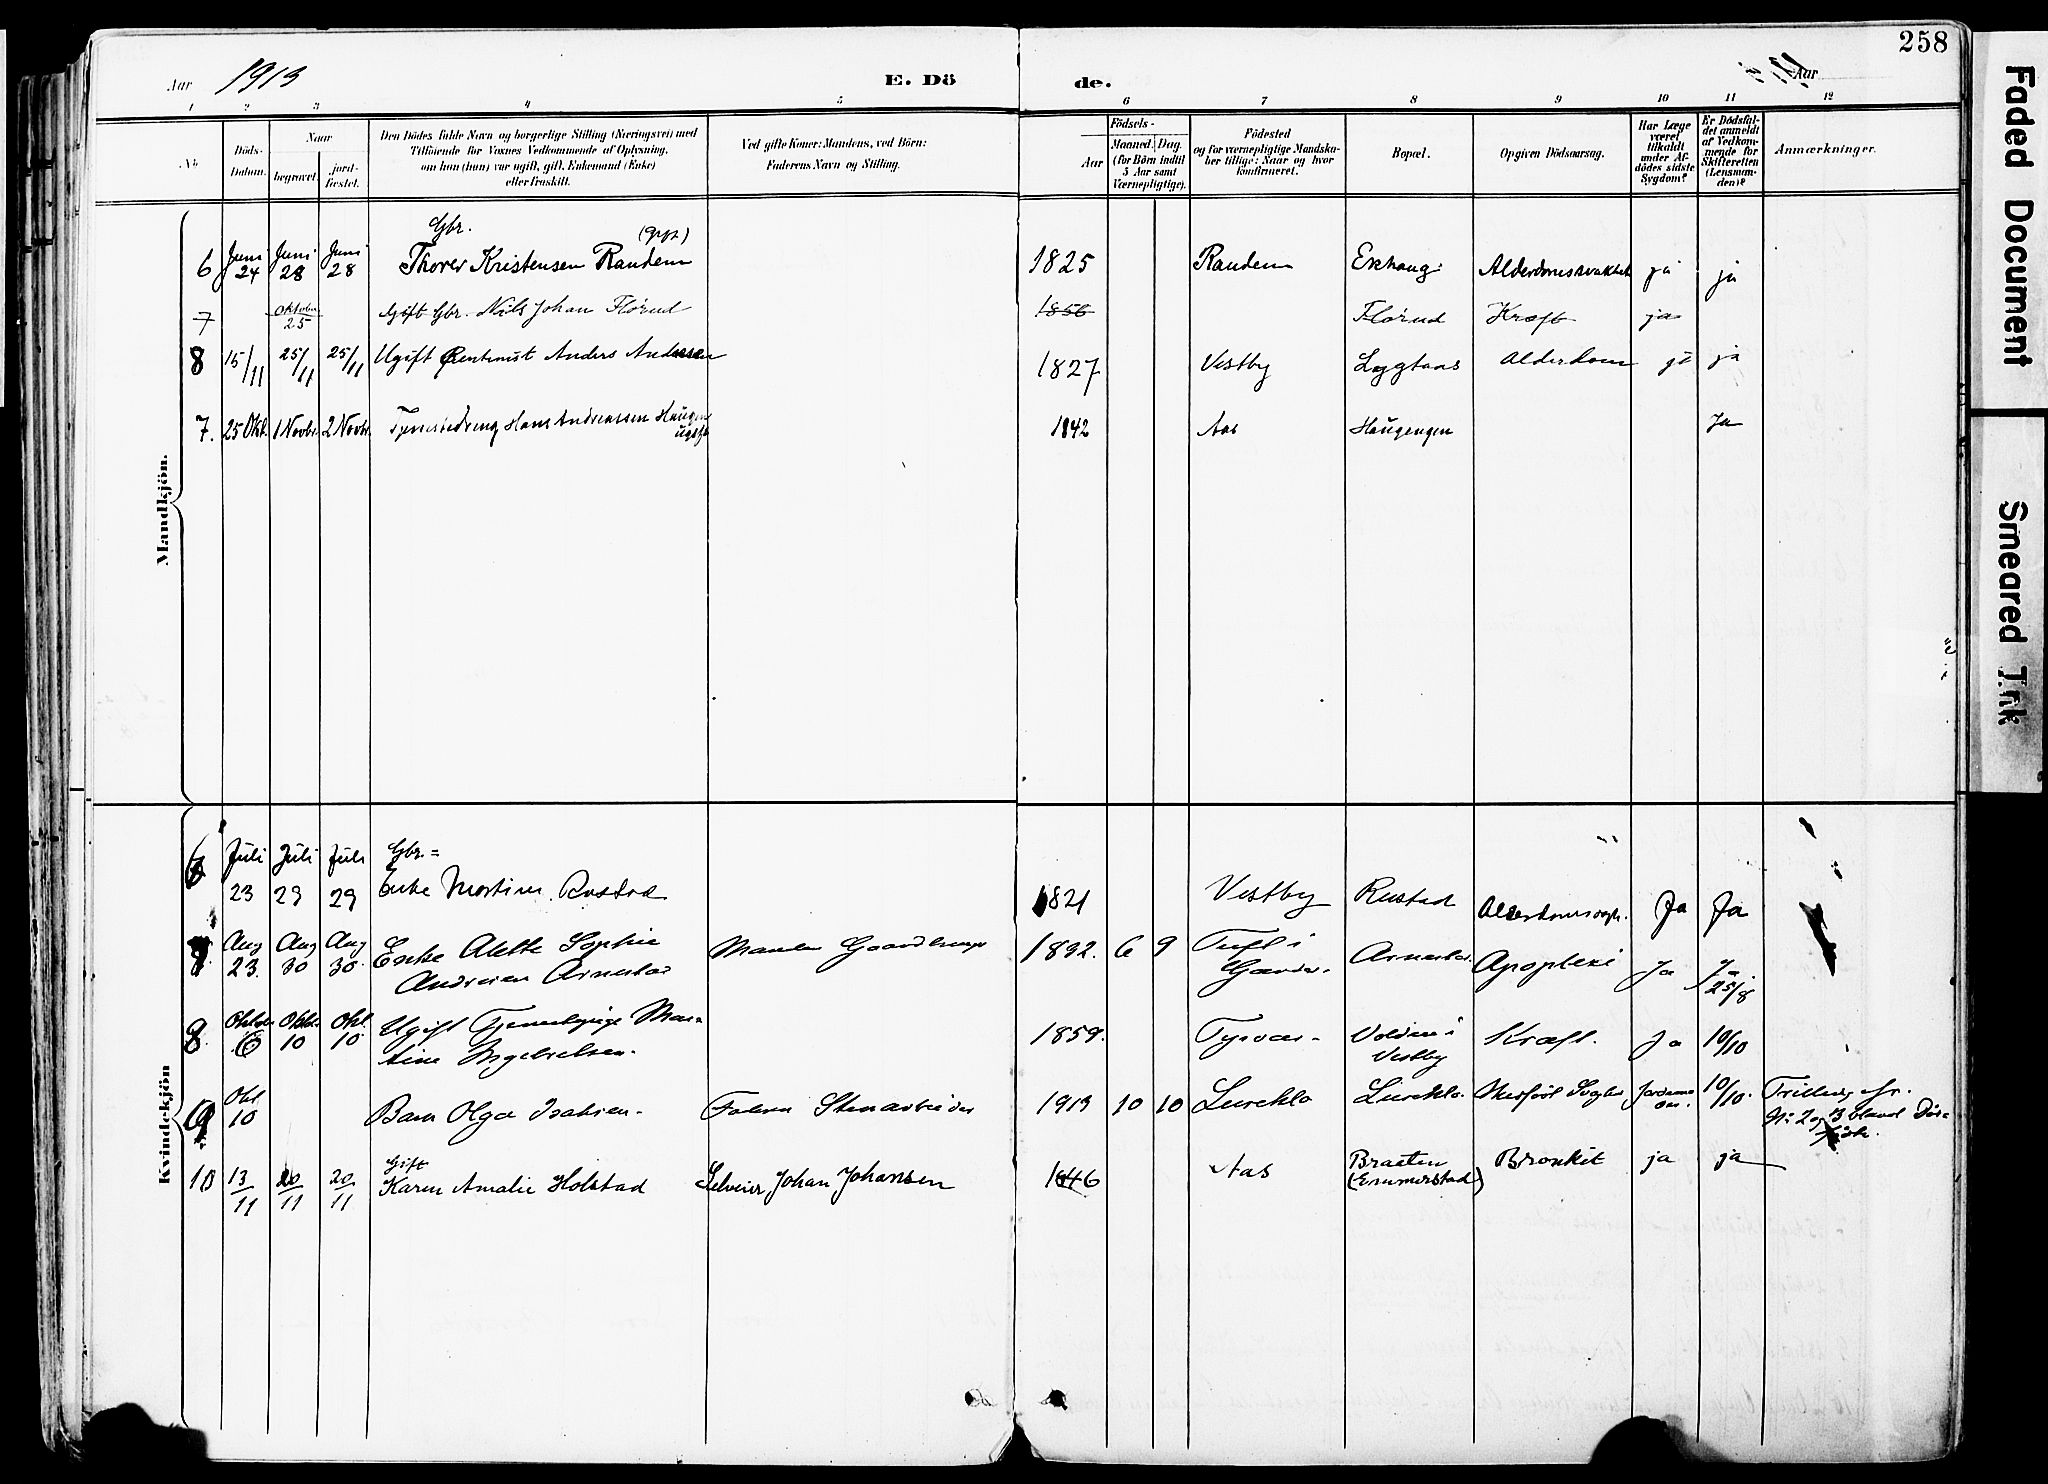 258
Aar 1913
E. Döde.
Aar
1 2 3 4 5 6 7 8 9 10 11 12
No
Döds-Datum.
Naar
begravet.
jord-fæstet.
Den Dödes fulde Navn og borgerlige Stilling (Næringsvei) med
Tilföiende for Voxnes Vedkommende af Oplysning,
om han (hun) var ugift, gift, Enkemand (Enke)
eller fraskilt.
Ved gifte Koner: Mandens, ved Börn:
Faderens Navn og Stilling.
Födsels-
Aar
Maaned. Dag.
(for Börn indtil
5 Aar samt
Værnepligtige).
Födested
og for værnepligtige Mandska-
ber tillige: Naar og hvor
konfirmeret.
Bopæl.
Opgiven Dödsaarsag.
Har Læge
været
tilkaldt
under Af-
dödes sidste
Sygdom?
Er Dödsfal-
det anmeldt
af Vedkom-
mende for
Skifteretten
(Lensman-
den)?
Anmærkninger.
Mandkjön.
Gbr.
6 Juni 24 Juni 28 Juni 28 Thorer Kristensen Randem 1825 Randem Ekhaug Alderdomssvakhet ja ja
7 Oktober 25 Gift Gbr. Nils Johan Flörud 1856 Flörud Kræft ja
8 15/11 25/11 25/11 Ugift Rentenist Anders Andersen 1827 Vestby Lygtaas Alderdom ja ja
7. 25 Okt. 1 Novbr. 2 Novbr. Tjenestedreng Hans Andreassen Haugen
ugift 1842 Aas Haugengen Ja
Kvindekjön
6 Juli 23 Juli 29 Juli 29 Gbr.=
Enke Martine Rustad 1821 Vestby Rustad Ja Ja
7. Aug 23. Aug 30 Aug 30. Enke Alette Sophie
Andrea Arnestad 1832. 6 9 Tuft i
Arnestad Apoplexi Ja Ja
25/8
8. Oktober 6 Oktbr 10 Okt. 10. Ugift Tjenestepige Mar-
tine Ingebretsen. 1859. Tysvær Volden i
Vestby Kræft. Ja 10/10
9 Okt 10 Barn Olga Isaksen Faderen Stenarbeider 1913 10 10 Lurekla Lurekla. 10/10. Trilling, fr.
Nr. 2 og 3 bland Død-
födte.
10 13/11 20/11 20/11 Gift
Karen Amalie Holstad Selveier Johan Johansen 1846 Aas Braaten
(Emmerstad) Bronkit ja ja
Faded Document
Smeared Ink